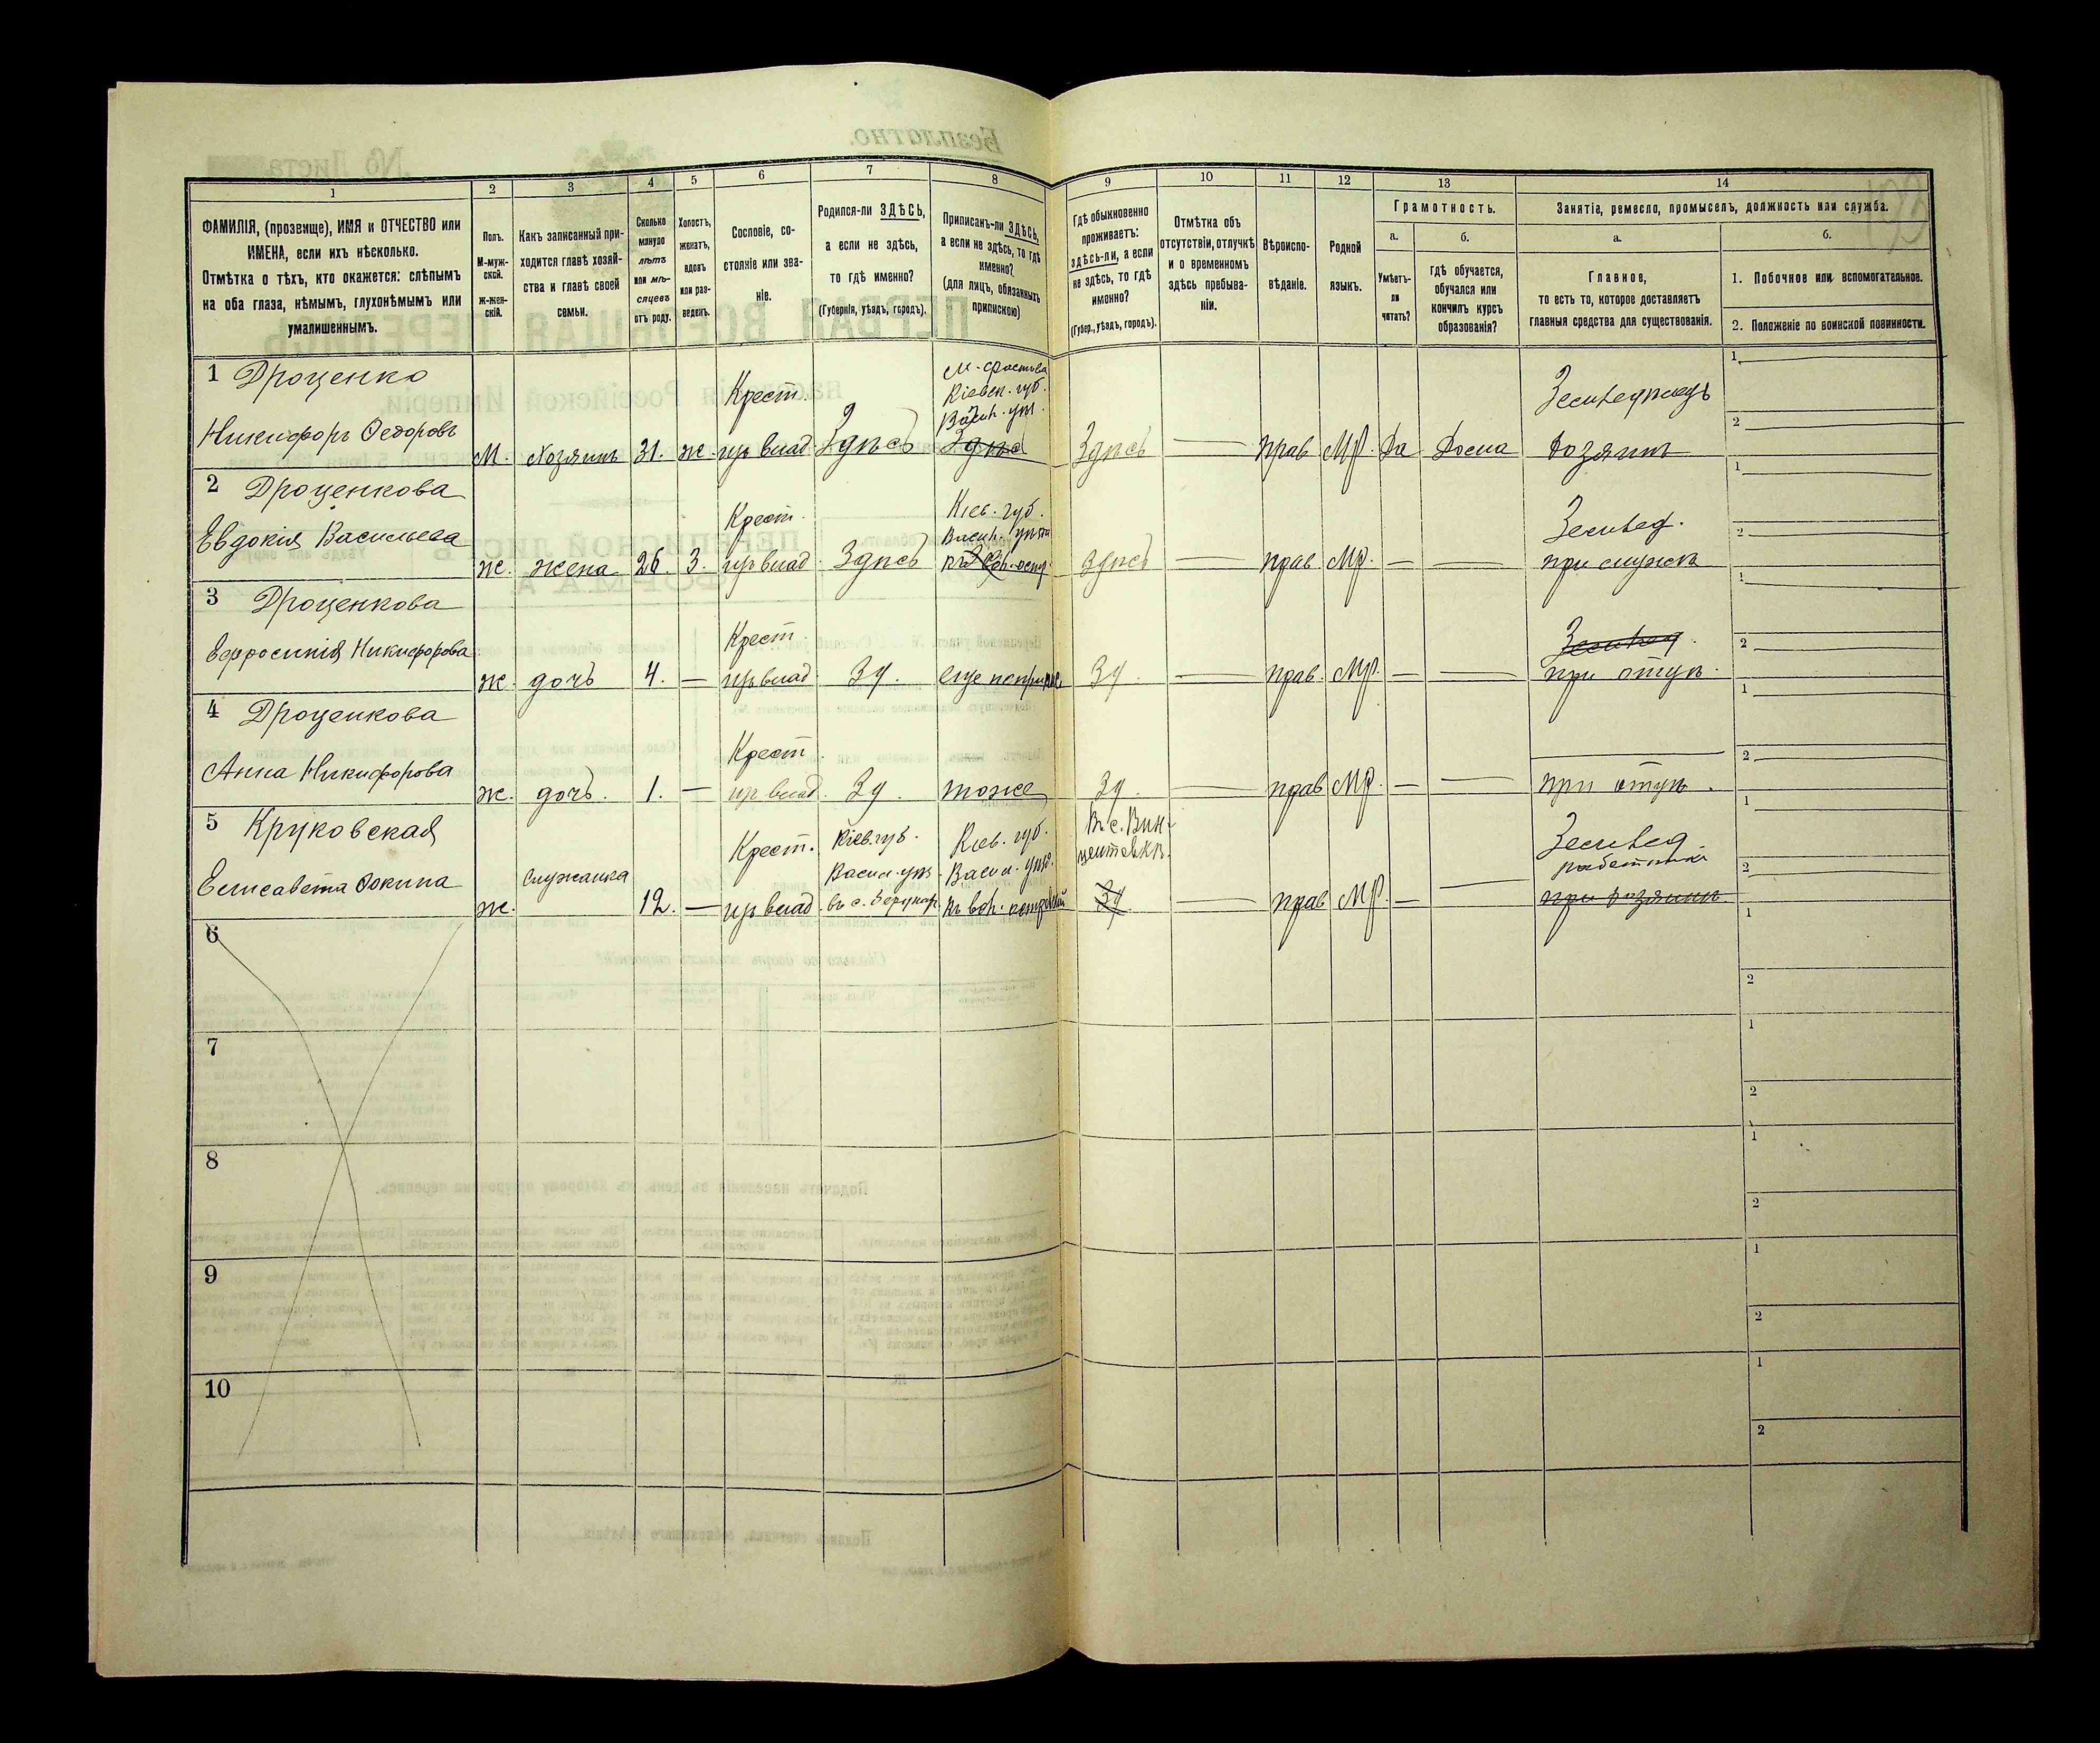 1
2
3
4
5
6
7
8
9
10
11
12
13
14
ФАМИЛІЯ, (прозвище), ИМЯ и ОТЧЕСТВО или
ИМЕНА, если ихъ нѣсколько.
Отмѣтка о тѣхъ, кто окажется: слѣпымъ
на оба глаза, нѣмымъ, глухонѣмымъ или
умалишеннымъ.
Полъ.
М-муж-
ской.
ж-жен-
скій.
Какъ записанный при-
ходится главѣ хозяй-
ства и главѣ своей
семьи.
Сколько
минуло
лѣтъ
или мѣ-
сяцевъ
отъ роду.
Холостъ,
женатъ,
вдовъ
или раз-
веденъ.
Сословіе, со-
стояніе или зва-
ніе.
Родился-ли ЗДѢСЬ,
а если не здѣсь,
то гдѣ именно?
(Губернія, уѣздъ, городъ).
Приписанъ-ли ЗДѢСЬ,
а если не здѣсь, то гдѣ
именно?
(для лицъ, обязанныхъ
припискою)
Гдѣ обыкновенно
проживаетъ:
здѣсь-ли, а если
не здѣсь, то гдѣ
именно?
(Губер., уѣздъ, городъ).
Отмѣтка объ
отсутствіи, отлучкѣ
и о временномъ
здѣсь пребыва-
ніи.
Вѣроиспо-
вѣданіе.
Родной
языкъ.
Грамотность.
а.
Умѣетъ-
ли
читать?
б.
гдѣ обучается,
обучался или
кончилъ курсъ
образованія?
Занятіе, ремесло, промыселъ, должность или служба.
а.
Главное,
то есть то, которое доставляетъ
главныя средства для существованія.
б.
1. Побочное или вспомогательное.
2. Положеніе по воинской повинности.
1 Дроценко
Никифоръ Ѳедоровъ
М.
Хозяинъ
31.
ж.
Крест.
изъ влад.
Здѣсь
Кіевск. губ.
Васил. уѣз.
Здѣсь
Здѣсь
прав
МР.
Да
Дома
хозяинъ
1
2
2 Дроценкова
Евдокія Васильева
ж.
жена
26.
З.
Крест.
изъ влад.
Здѣсь
Кіев. губ.
здѣсь
прав.
МР.
Землед.
1
2
3 Дроценкова
Никифорова
ж.
дочь
4.
Крест.
изъ влад.
Зд.
Зд.
прав.
МР.
Землед.
при отцѣ.
1
2
4 Дроценкова
Анна Никифорова
ж.
дочь.
1.
Крест.
изъ влад.
Зд.
тоже
Зд.
прав
МР.
при отцѣ.
1
2
5 Круковская
Елисавета Фокина
ж.
служанка
12.
Крест.
изъ влад.
Кіев. губ.
Васил. уѣз.
Кіев. губ.
Васил. уѣз.
Въ с. Вин-
центовкѣ.
Зд
прав
МР.
Землед.
работница
при хозяинѣ
1
2
6
1
2
7
1
2
8
1
2
9
1
2
10
1
2